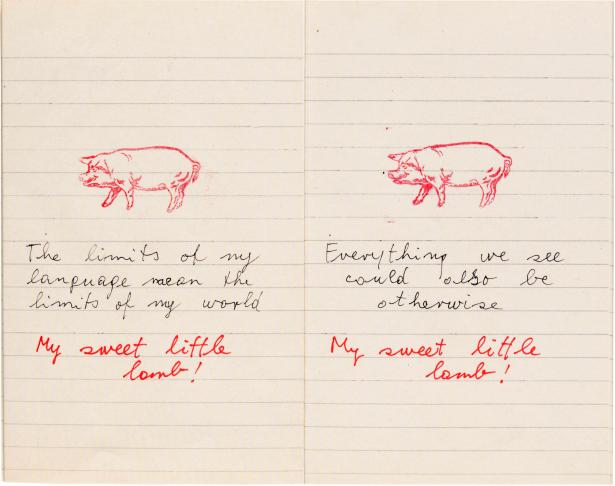 The limits of my
language mean the
limits of my world
My sweet little
lamb!
Everything we see
could also be
otherwise
My sweet little
lamb!